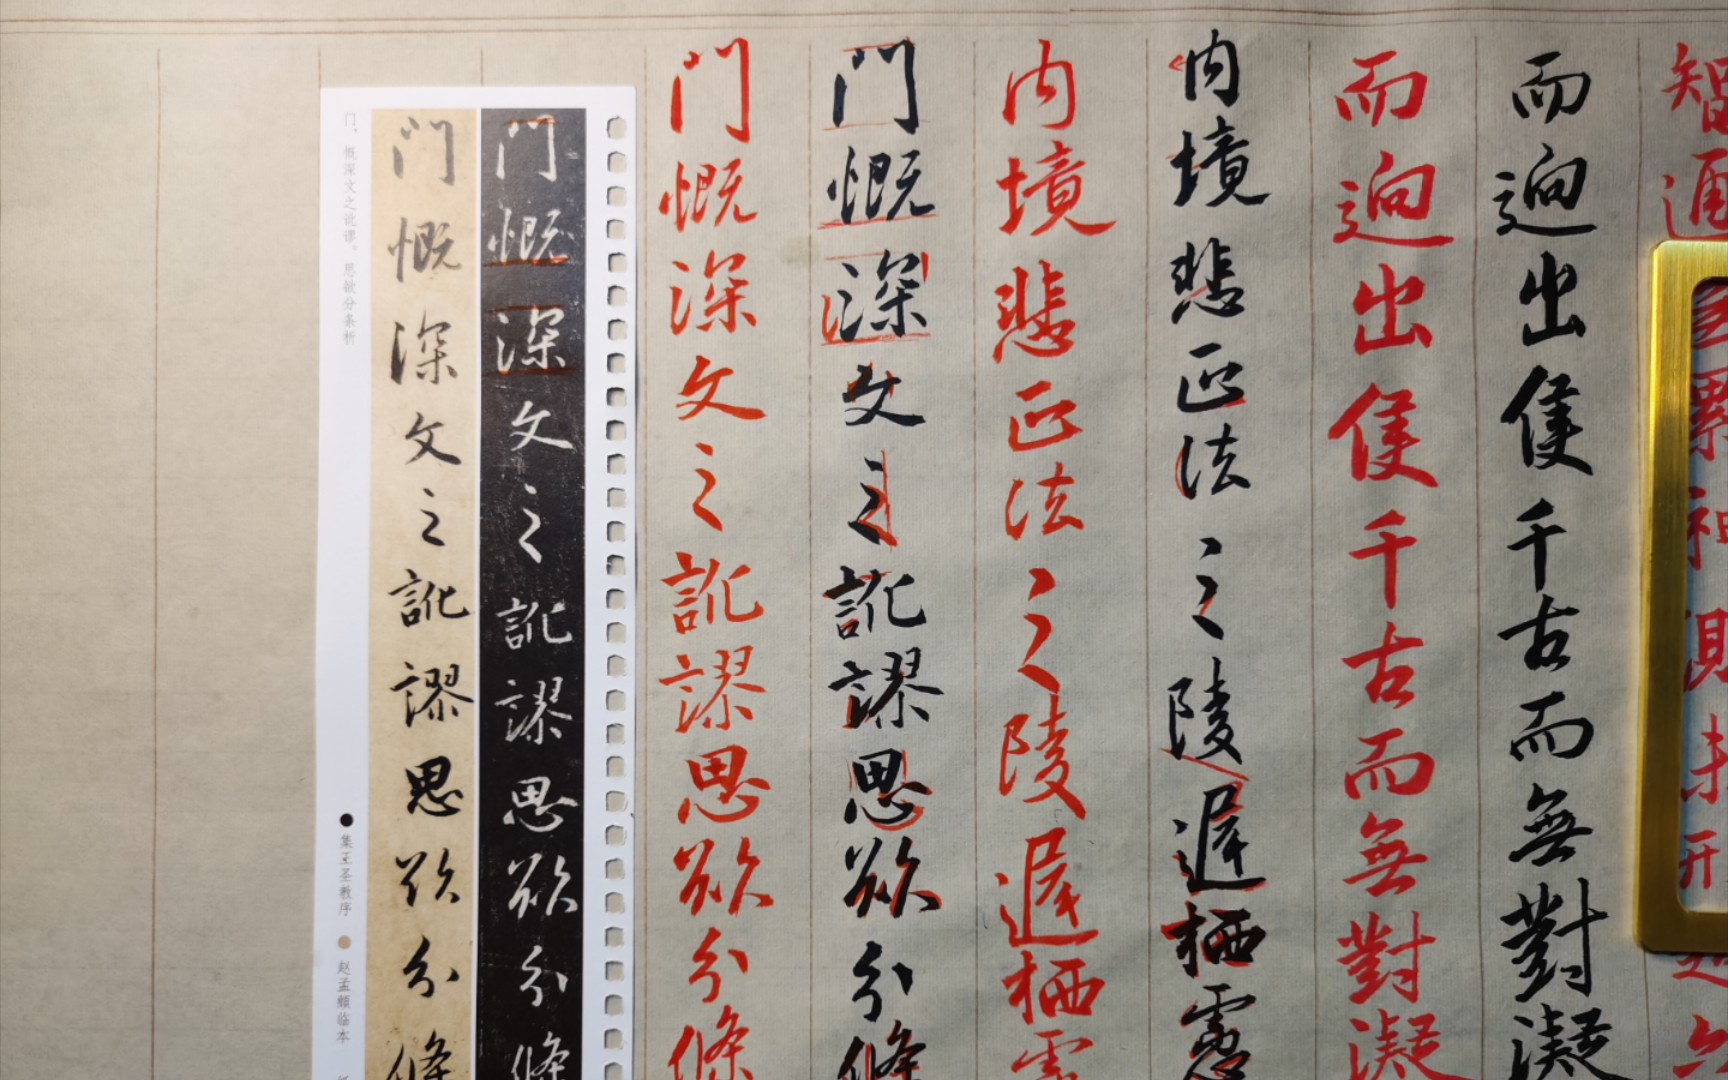 智通
罪和
測未形
而迥出使千古而無對凝
而迥出使千古而無對凝
内境悲正法之陵遲栖慮
内境悲正法之陵遲栖慮
門慨深文之訛謬思欲分條
門慨深文之訛謬思欲分條
門慨深文之訛謬思欲分條
門慨深文之訛謬思欲分條
门，慨深文之讹谬。思欲分条析
集王圣教序
赵孟頫临本